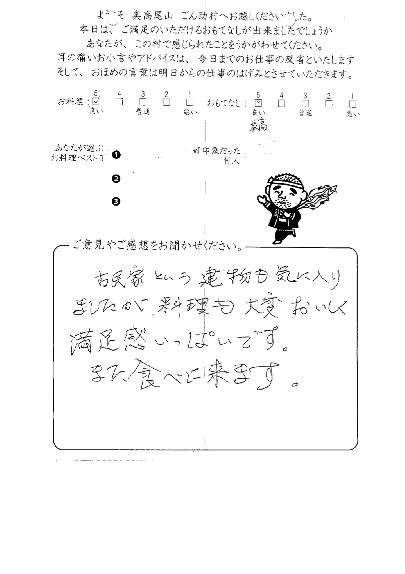 ようこそ 奥高尾山 ごん助村へお越しくださいました。
本日は、ご満足のいただけるおもてなしが出来ましたでしょうか
あなたが、この村で感じられたことをうかがわせてください。
耳の痛いお小言やアドバイスは、今日までのお仕事の反省といたします
そして、おほめの言葉は明日からの仕事のはげみとさせていただきます。
お料理: 5 4 3 2 1 おもてなし: 5 4 3 2 1
良い 普通 悪い 良い 普通 悪い
最高
あなたが選ぶ
お料理ベスト3
❶
❷
❸
好印象だった
村人
ご意見やご感想をお聞かせください。
古民家という建物も気に入り
ましたが料理も大変おいしく
満足感いっぱいです。
また食べに来ます。